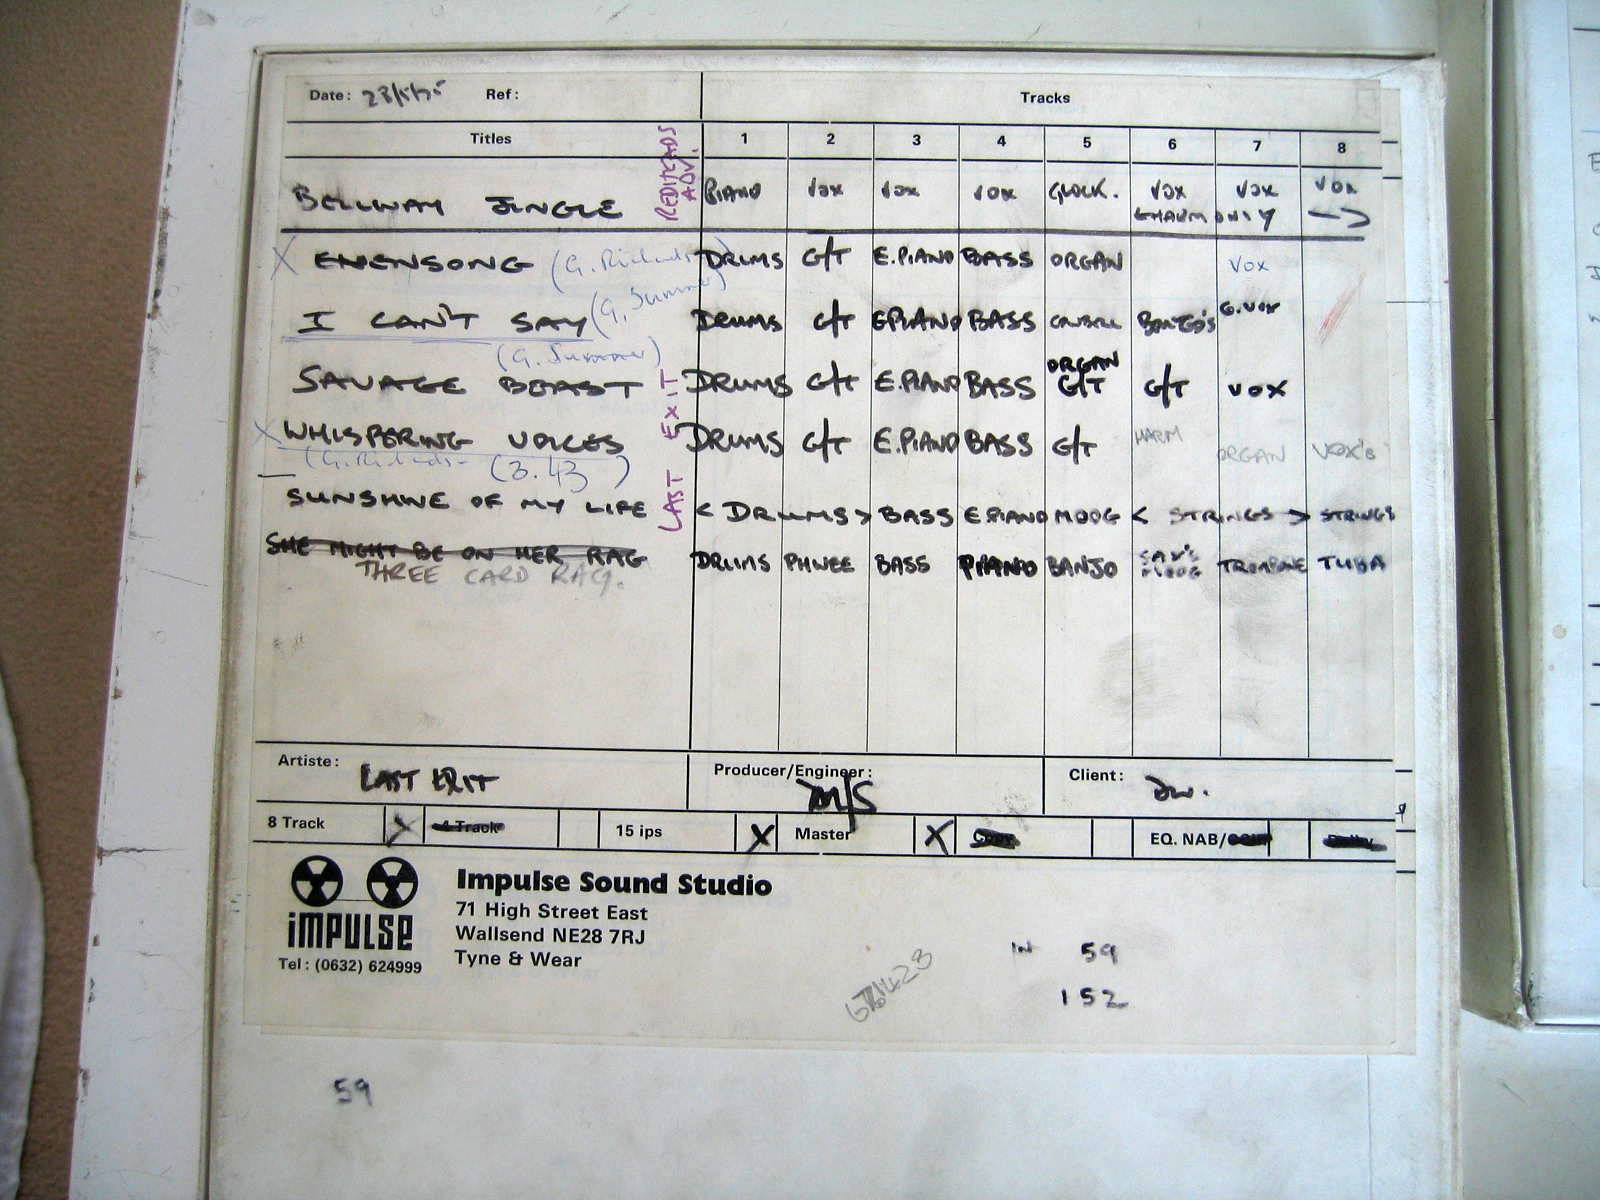 Date: 23/5/75 Ref: Tracks
Titles 1 2 3 4 5 6 7 8
REDIHEADS ADV.
BELLWAY JINGLE PIANO VOX VOX VOX GLOCK. VOX VOX VOX
HARM ONLY
X EVENSONG (G. Richards) DRUMS G/T E.PIANO BASS ORGAN VOX
I CAN'T SAY (G. Summer) DRUMS G/T E PIANO BASS COWBELL BONGO'S G.VOX
(G. Summer)
SAVAGE BEAST DRUMS G/T E.PIANO BASS ORGAN G/T G/T VOX
LAST EXIT
X WHISPERING VOICES DRUMS G/T E.PIANO BASS G/T HARM ORGAN VOX's
(G. Richards- (3.43)
SUNSHINE OF MY LIFE < DRUMS > BASS E PIANO MOOG < STRINGS > STRINGS
SHE MIGHT BE ON HER RAG DRUMS PHWEE BASS PIANO BANJO SAX'S MOOG TROMBONE TUBA
THREE CARD RAG.
Artiste: LAST EXIT Producer/Engineer: M/S Client: DW.
8 Track X 4 Track 15 ips X Master X Copy EQ. NAB/CCIR Dolby
iMPULSE
Tel: (0632) 624999
Impulse Sound Studio
71 High Street East
Wallsend NE28 7RJ
Tyne & Wear
IN 59
152
59